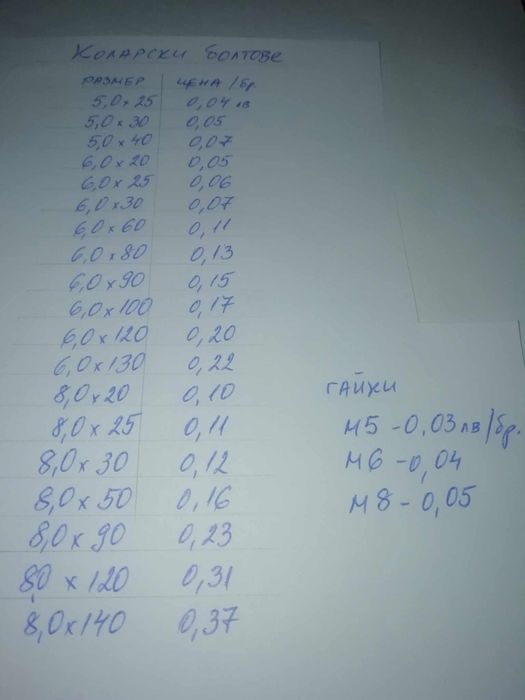 Коларски болтове
РАЗМЕР ЦЕНА /бр.
5,0 x 25 0,04 лв
5,0 x 30 0,05
5,0 x 40 0,07
6,0 x 20 0,05
6,0 x 25 0,06
6,0 x 30 0,07
6,0 x 60 0,11
6,0 x 80 0,13
6,0 x 90 0,15
6,0 x 100 0,17
6,0 x 120 0,20
6,0 x 130 0,22
8,0 x 20 0,10
8,0 x 25 0,11
8,0 x 30 0,12
8,0 x 50 0,16
8,0 x 90 0,23
8,0 x 120 0,31
8,0 x 140 0,37
ГАЙКИ
М5 - 0,03 лв/бр.
М6 - 0,04
М8 - 0,05